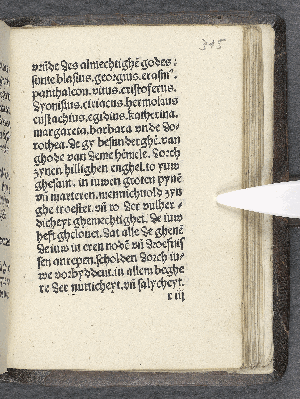 345
vrůde des almechtighē godes:
sunte blasius. georgius. erasm⁹.
panthaleon. vitus. cristoferus.
dyonisius. ciriacus. hermolaus
eustachius. egidius. katherina.
margareta. barbara vnde do-
rothea. de gy besunderghē. van
ghode van deme hēmele. dorch
zynen hillighen enghel. to yuw
ghesant. in iuwen groten pynē
vñ marteren. mennichuold zyn
ghe troestet. vñ to der vulher-
dicheyt ghemechtighet. de iuw
heft ghelouet. dat alle de ghenē
de iuw in eren node vñ droefnis
sen anropen. scholden dorch iu-
we vorbyddent. in allem beghe
re der nutticheyt. vñ salycheyt.
r iij